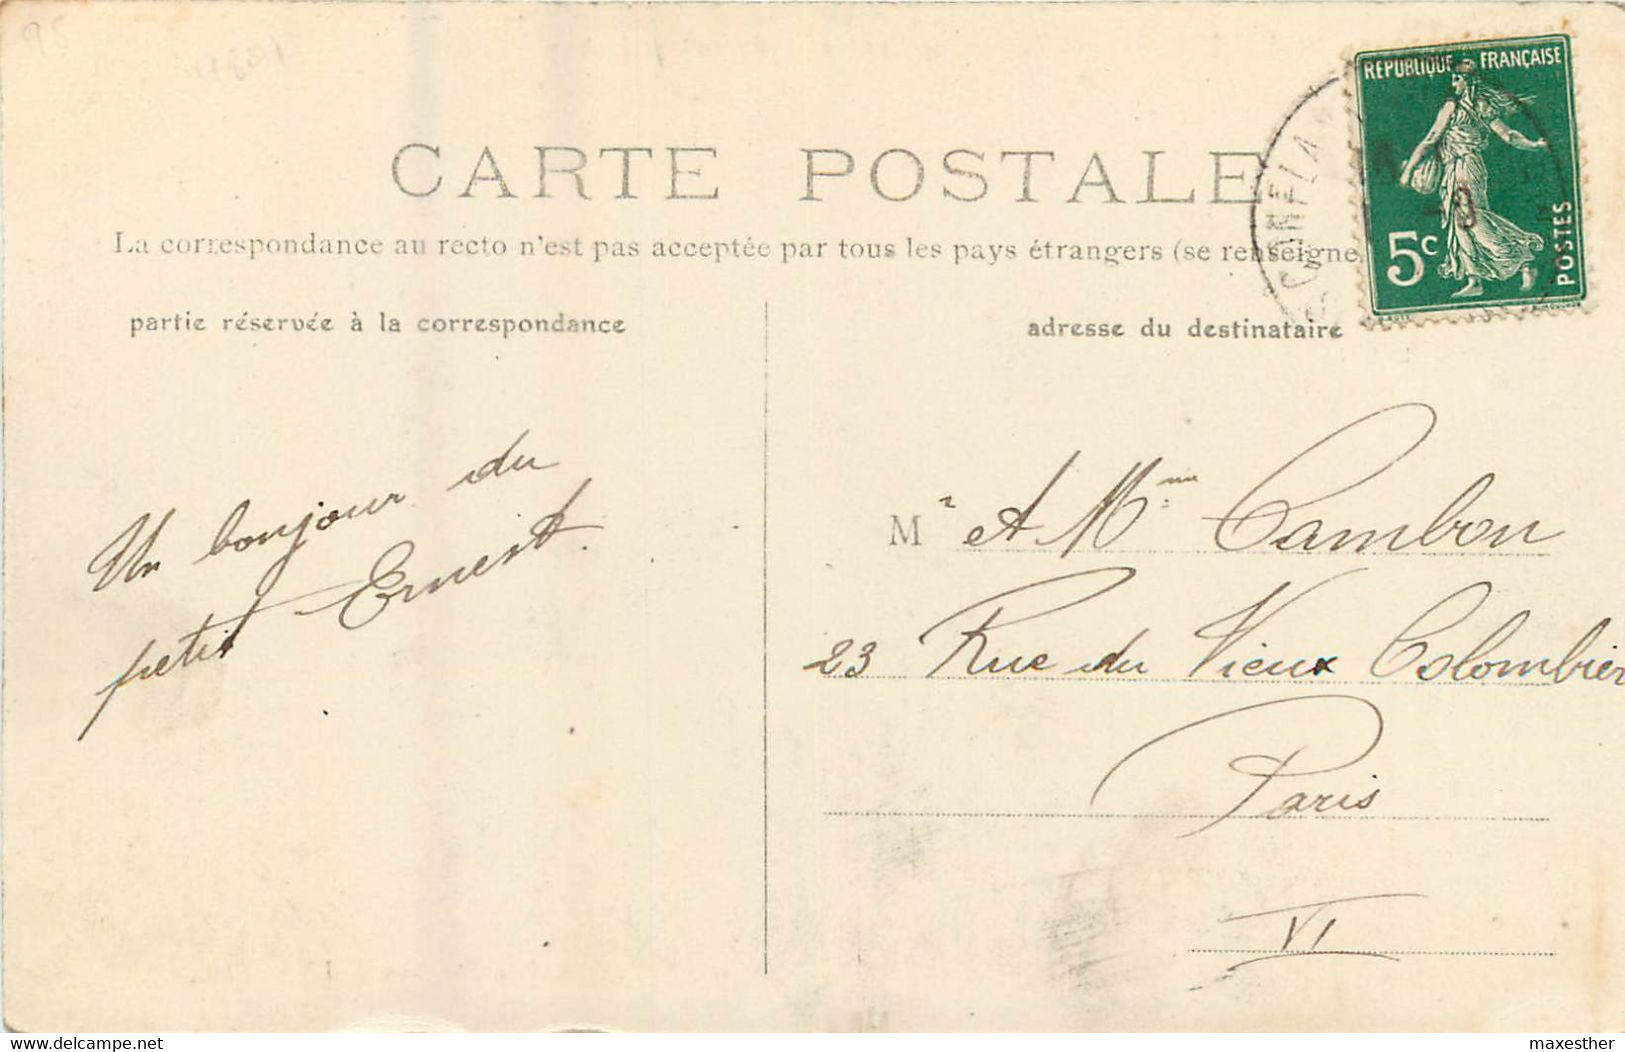 CARTE POSTALE
La correspondance au recto n'est pas acceptée par tous les pays étrangers (se renseigne
partie réservée à la correspondance
adresse du destinataire
REPUBLIQUE FRANÇAISE
5c
POSTES
Un bonjour du
petit Ernest.
Mr et Mme Cambon
23 Rue du Vieux Colombier
Paris
VI
www.delcampe.net
maxesther